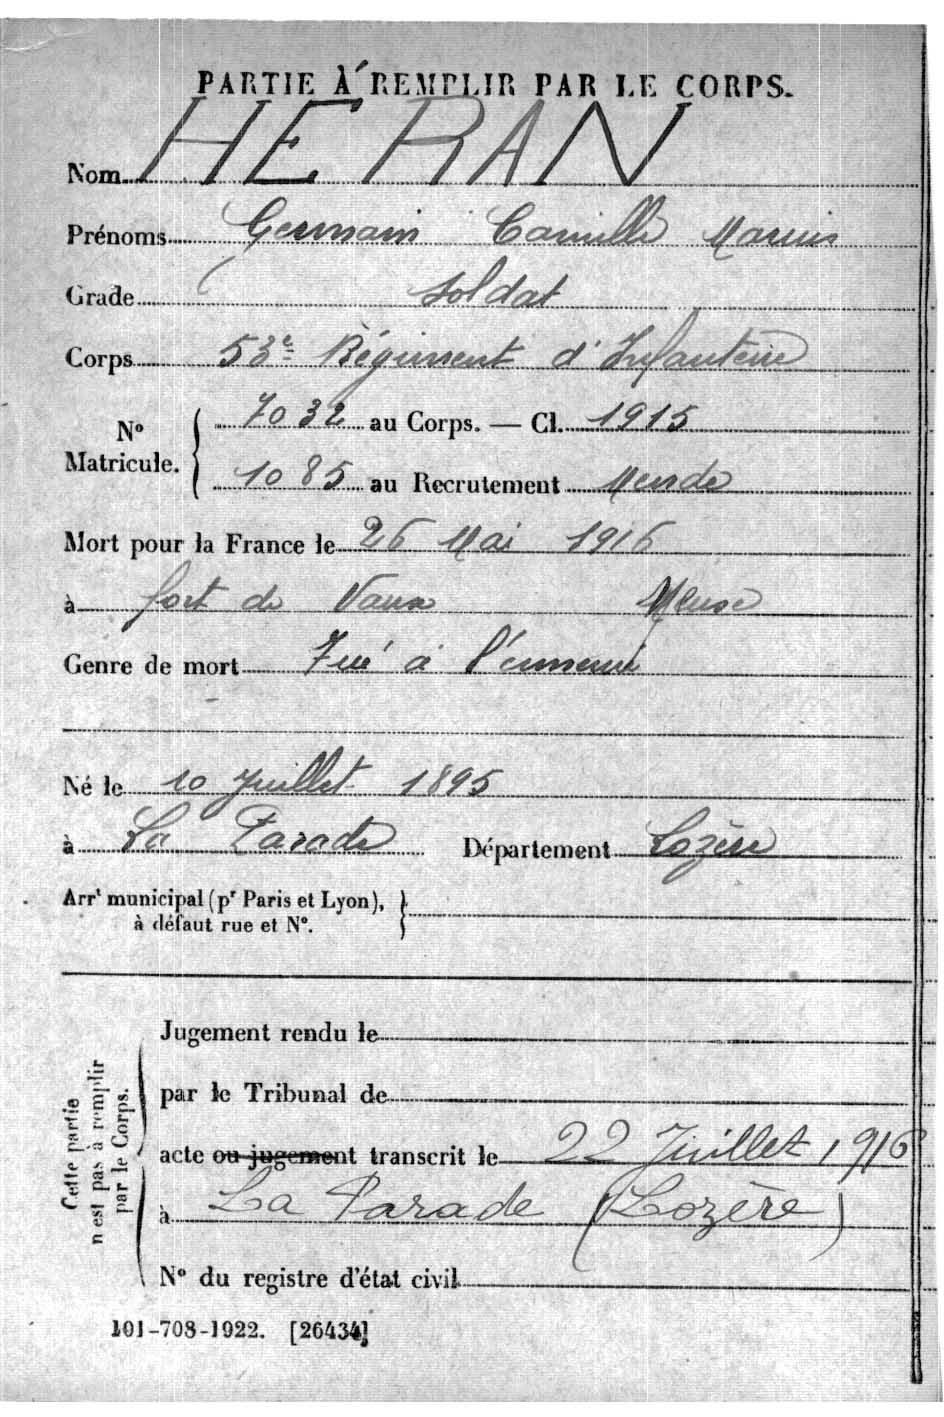 PARTIE À REMPLIR PAR LE CORPS.
Nom HERAN
Prénoms Germain Camille Marius
Grade soldat
Corps 53e Régiment d'Infanterie
N° Matricule. 7032 au Corps. — Cl. 1915
1085 au Recrutement Mende
Mort pour la France le 26 Mai 1916
à fort de Vaux Meuse
Genre de mort Tué à l'ennemi
Né le 10 Juillet 1895
à La Parade Département Lozère
Arrt municipal (pr Paris et Lyon),
à défaut rue et N°.
Cette partie
n'est pas à remplir
par le Corps.
Jugement rendu le
par le Tribunal de
acte ou jugement transcrit le 22 Juillet 1916
à La Parade (Lozère)
N° du registre d'état civil
101-708-1922. [26434]